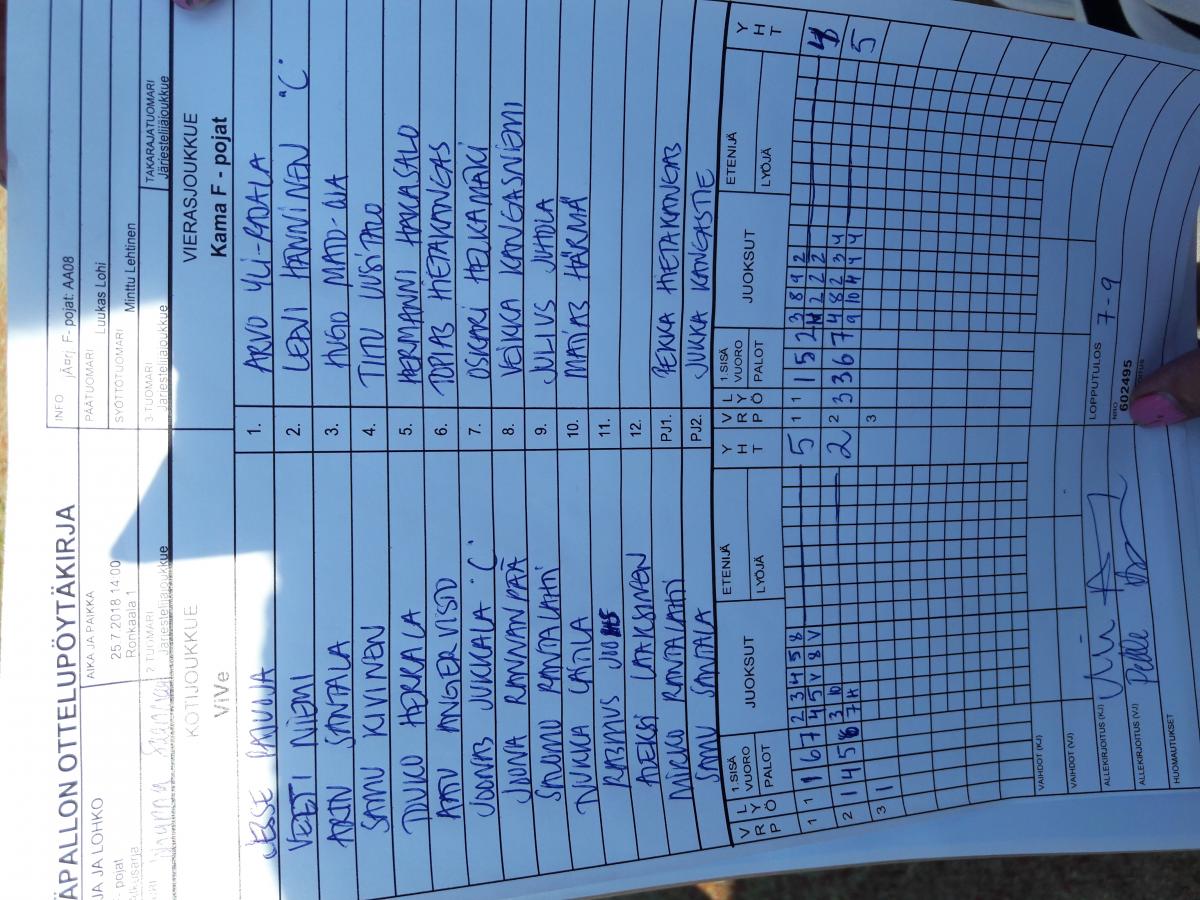 ÄPALLON OTTELUPÖYTÄKIRJA
JA JA LOHKO
- pojat
Alkusarja
AIKA JA PAIKKA
25 7 2018 14:00
Ronkaala 1
INFO F- pojat: AA08
PÄÄTUOMARI Luukas Lohi
SYÖTTÖTUOMARI Minttu Lehtinen
2-TUOMARI
Järjestelijäjoukkue
3-TUOMARI
Järjestelijäjoukkue
TAKARAJATUOMARI
Järjestelijäjoukkue
KOTIJOUKKUE
ViVe
VIERASJOUKKUE
Kama F - pojat
JESSE 1. ARVO YLI-PATALA
VEETI NIEMI 2. LEEVI HANNINEN "C"
ARTTU SANTALA 3. HUGO
SAMU KIVINEN 4. TITU UUSITALO
OUKO HERRALA 5. HERMANNI HAKASALO
AATU ANGERVISTO 6. TOPIAS HIETAKANGAS
JOONAS JUKKALA "C" 7. OSKARI HELKAMÄKI
JUUNA RANNANPÄÄ 8. VEIKKA KANGASNIEMI
SAUMU RANTALAHTI 9. JULIUS JUHOLA
TUUKKA 10. MATIAS HÄRMÄ
RASMUS 11.
ALEKSI LAAKSONEN 12.
MIKKO RANTALAHTI PJ1. PEKKA HIETAKANGAS
SAMU SANTALA PJ2. JUKKA KANGASTIE
V R P
L Y Ö
1.SISÄ VUORO
PALOT
JUOKSUT
ETENIJÄ
LYÖJÄ
Y H T
V R P
L Y Ö
1.SISÄ VUORO
PALOT
JUOKSUT
ETENIJÄ
LYÖJÄ
Y H T
1 1 1 6 7 2 3 4 5 8 5
7 4 5 V 8 V
2 1 4 5 8 3 10 2
3 1
1 1 1 5 2 3 8 9 2 4
2 2 2
2 3 3 6 7 4 8 2 3 4 5
9 10 4 4 4
3
VAIHDOT (KJ)
VAIHDOT (VJ)
LOPPUTULOS 7-9
ALLEKIRJOITUS (KJ)
NRO
602495
ALLEKIRJOITUS (VJ) Pekka
HUOMAUTUKSET